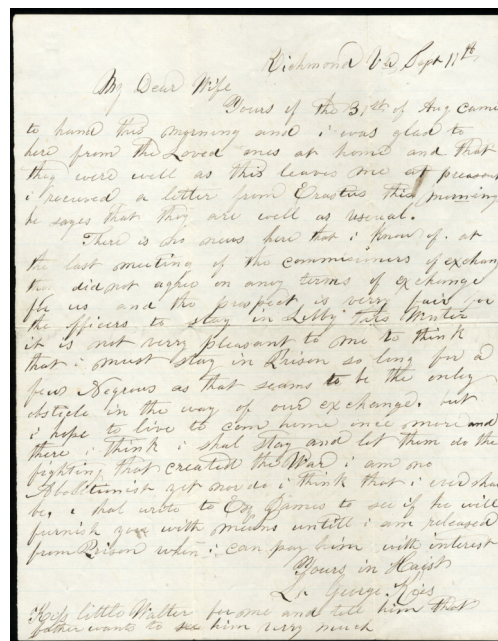 Richmond Va Sept 11th
My Dear Wife
Yours of the 31st of Aug came
to hand this morning and i was glad to
here from the Loved ones at home and that
they were well as this leaves me at preasant
i received a letter from Erastus this morning
he sayes that they are well as useual.
There is no news here that i know of. at
the last meeting of the commisiners of exchang
the did not agree on any terms of exchange
for us and the prospect is very fair for
the officers to stay in Libby this Winter
it is not verry pleasant to me to think
that i must stay in Prison so long for a
few Negroes as that seams to be the only
obsticle in the way of our exchange. but
i hope to live to com home once more and
there i think i shal stay and let them do the
fighting that created the War i am no
Abolitionist yet nor do i think that i ever shal
be, i shal write to Esq James to see if he will
furnish you with means untill i am released
from Prison when i can pay him with interest
Yours in Hast
Lt George
Kiss little Walter for me and tell him that
father wants to see him very much